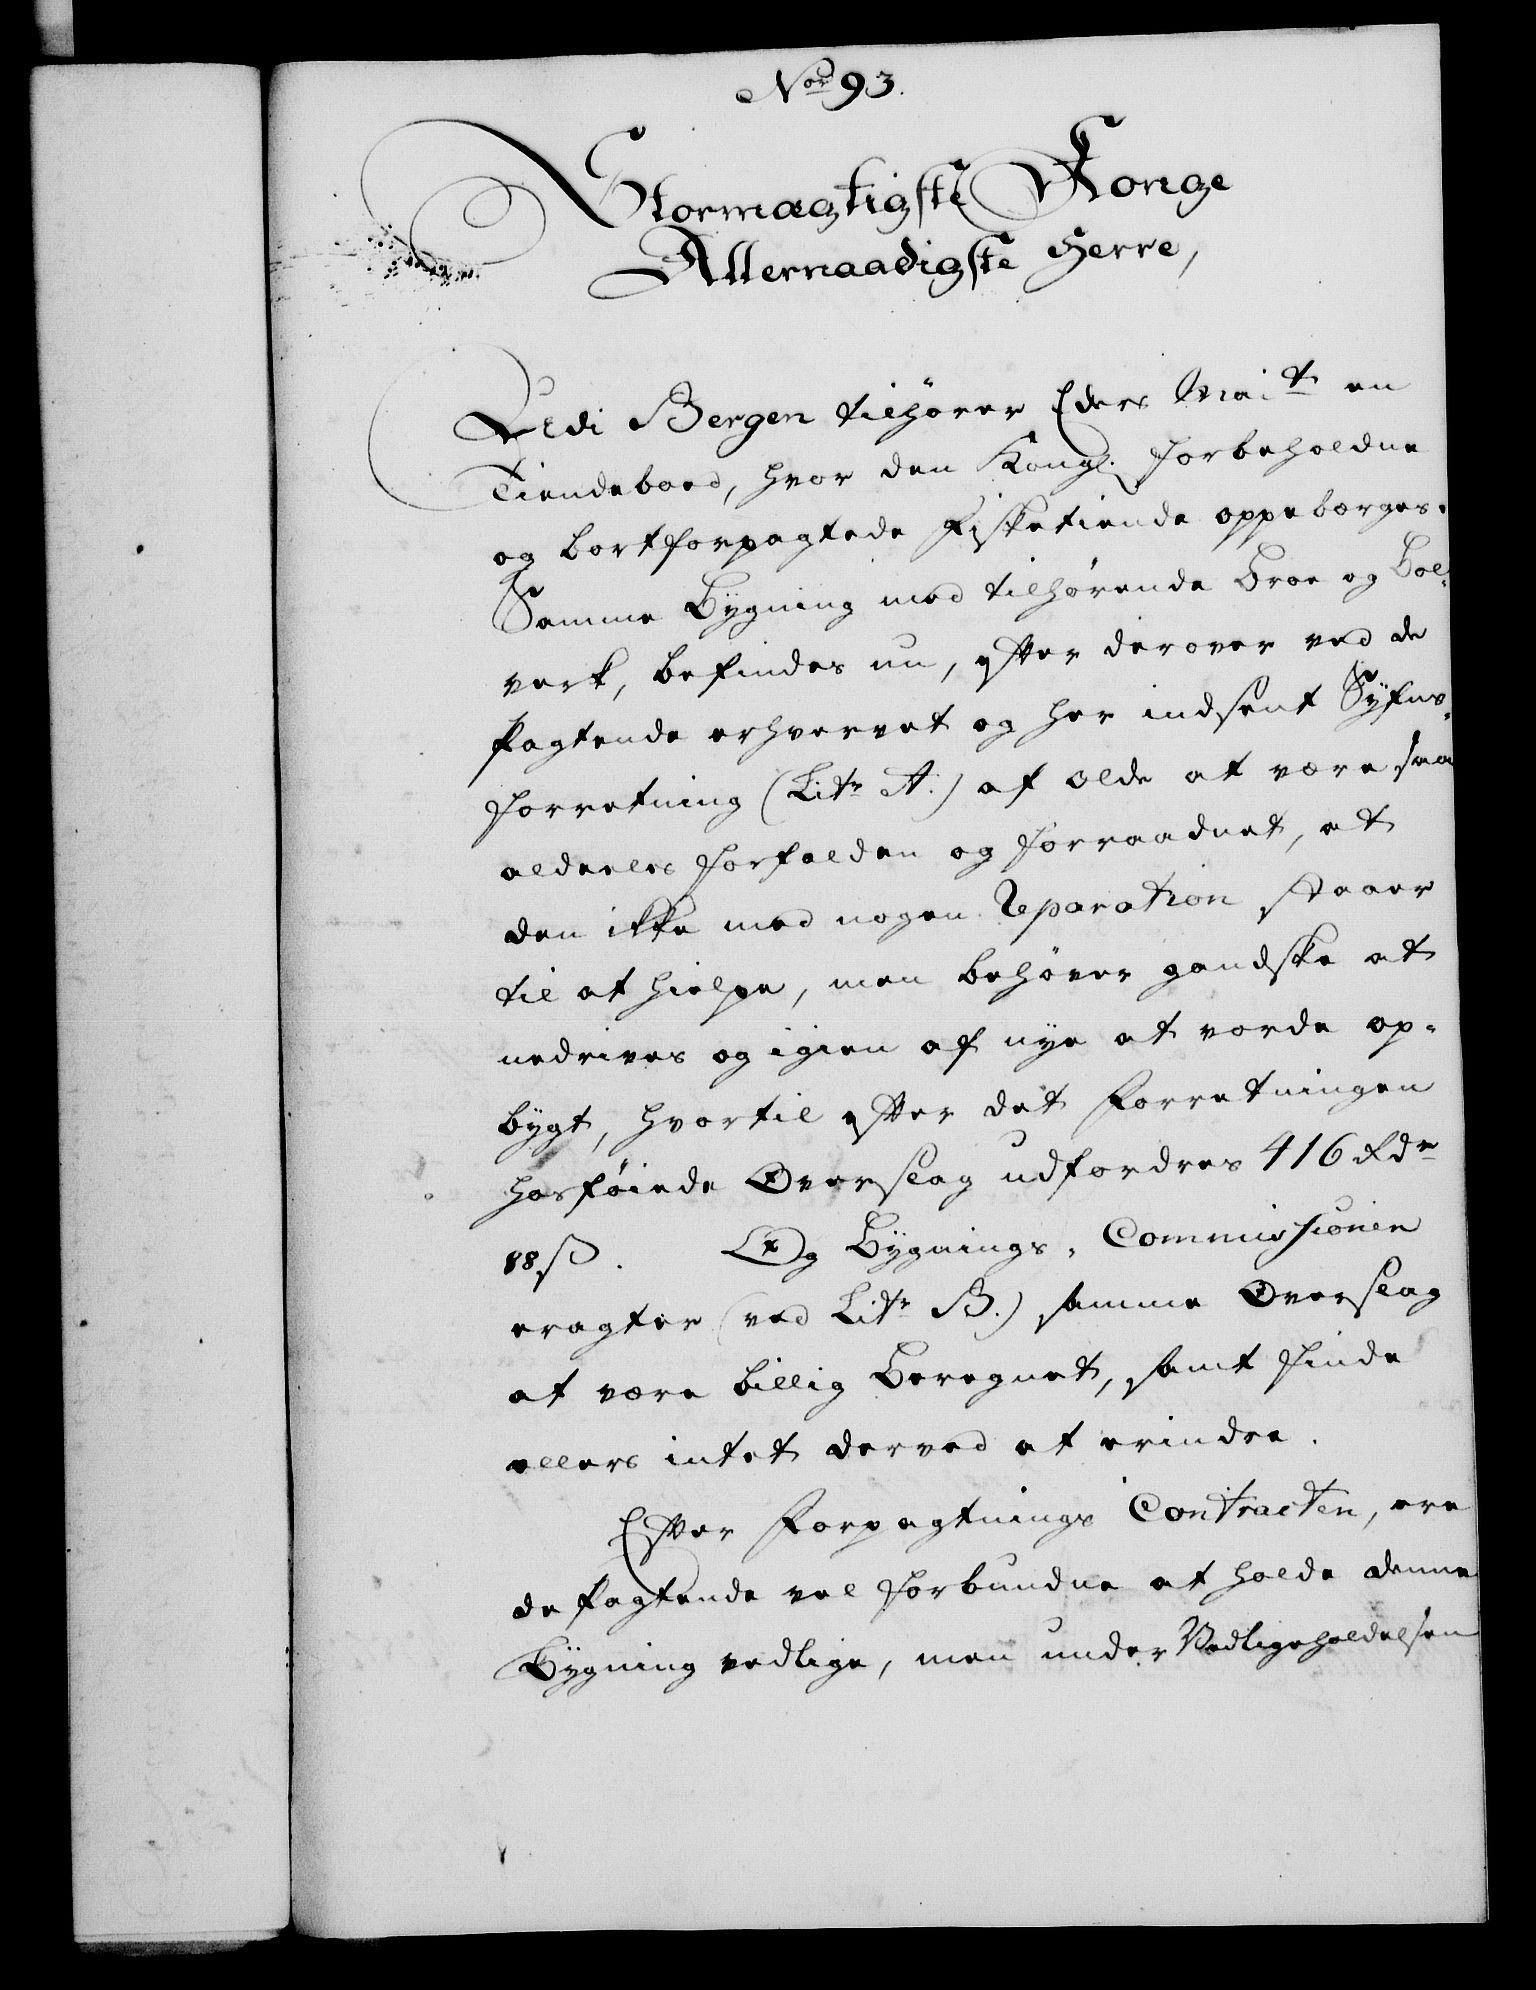 Nor 93.
Stormægtigste Konge
Allernaadigste Herre,
Udi Bergen tilhører Eders Mai.t en
Tiendeboed, hvor den Kongl. forbeholdne
og bortforpagtede Fisketiende oppebærges.
Samme Bÿgning med tilhørende Broe og Bol-
verk, befindes nu, efter derover ved de
Pagtende erhvervet og her indsent Sÿfns-
forretning (Litr A.) af Ælde at være saa
aldeeles forfalden og forraadnet, at
den ikke med nogen Reparation staaer
til at hielpe, men behøver gandske at
nedrives og igien af nye at vorde op-
bÿgt, hvortil efter det Forretningen
hosføiede Overslag udfordres 416 Rdr
88 ß. Og Bÿgnings-Commissionen
eragter (ved Litr B.) samme Overslag
at være billig Beregnet, samt finde
ellers intet derved at erindre.
Efter Forpagtnings Contracten, ere
de Pagtende vel forbundne at holde denne
Bÿgning vedlige, men under Vedligeholdelsen